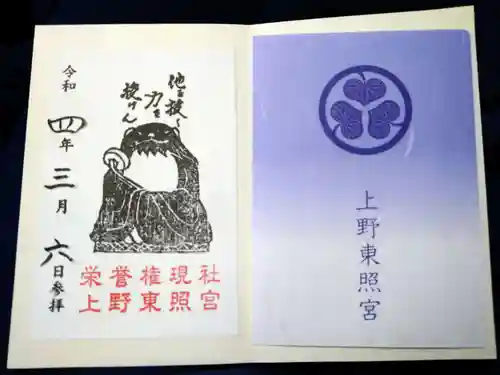 他を抜く
力を
授けん
令和四年三月六日参拝
栄誉権現社
上野東照宮
上野東照宮